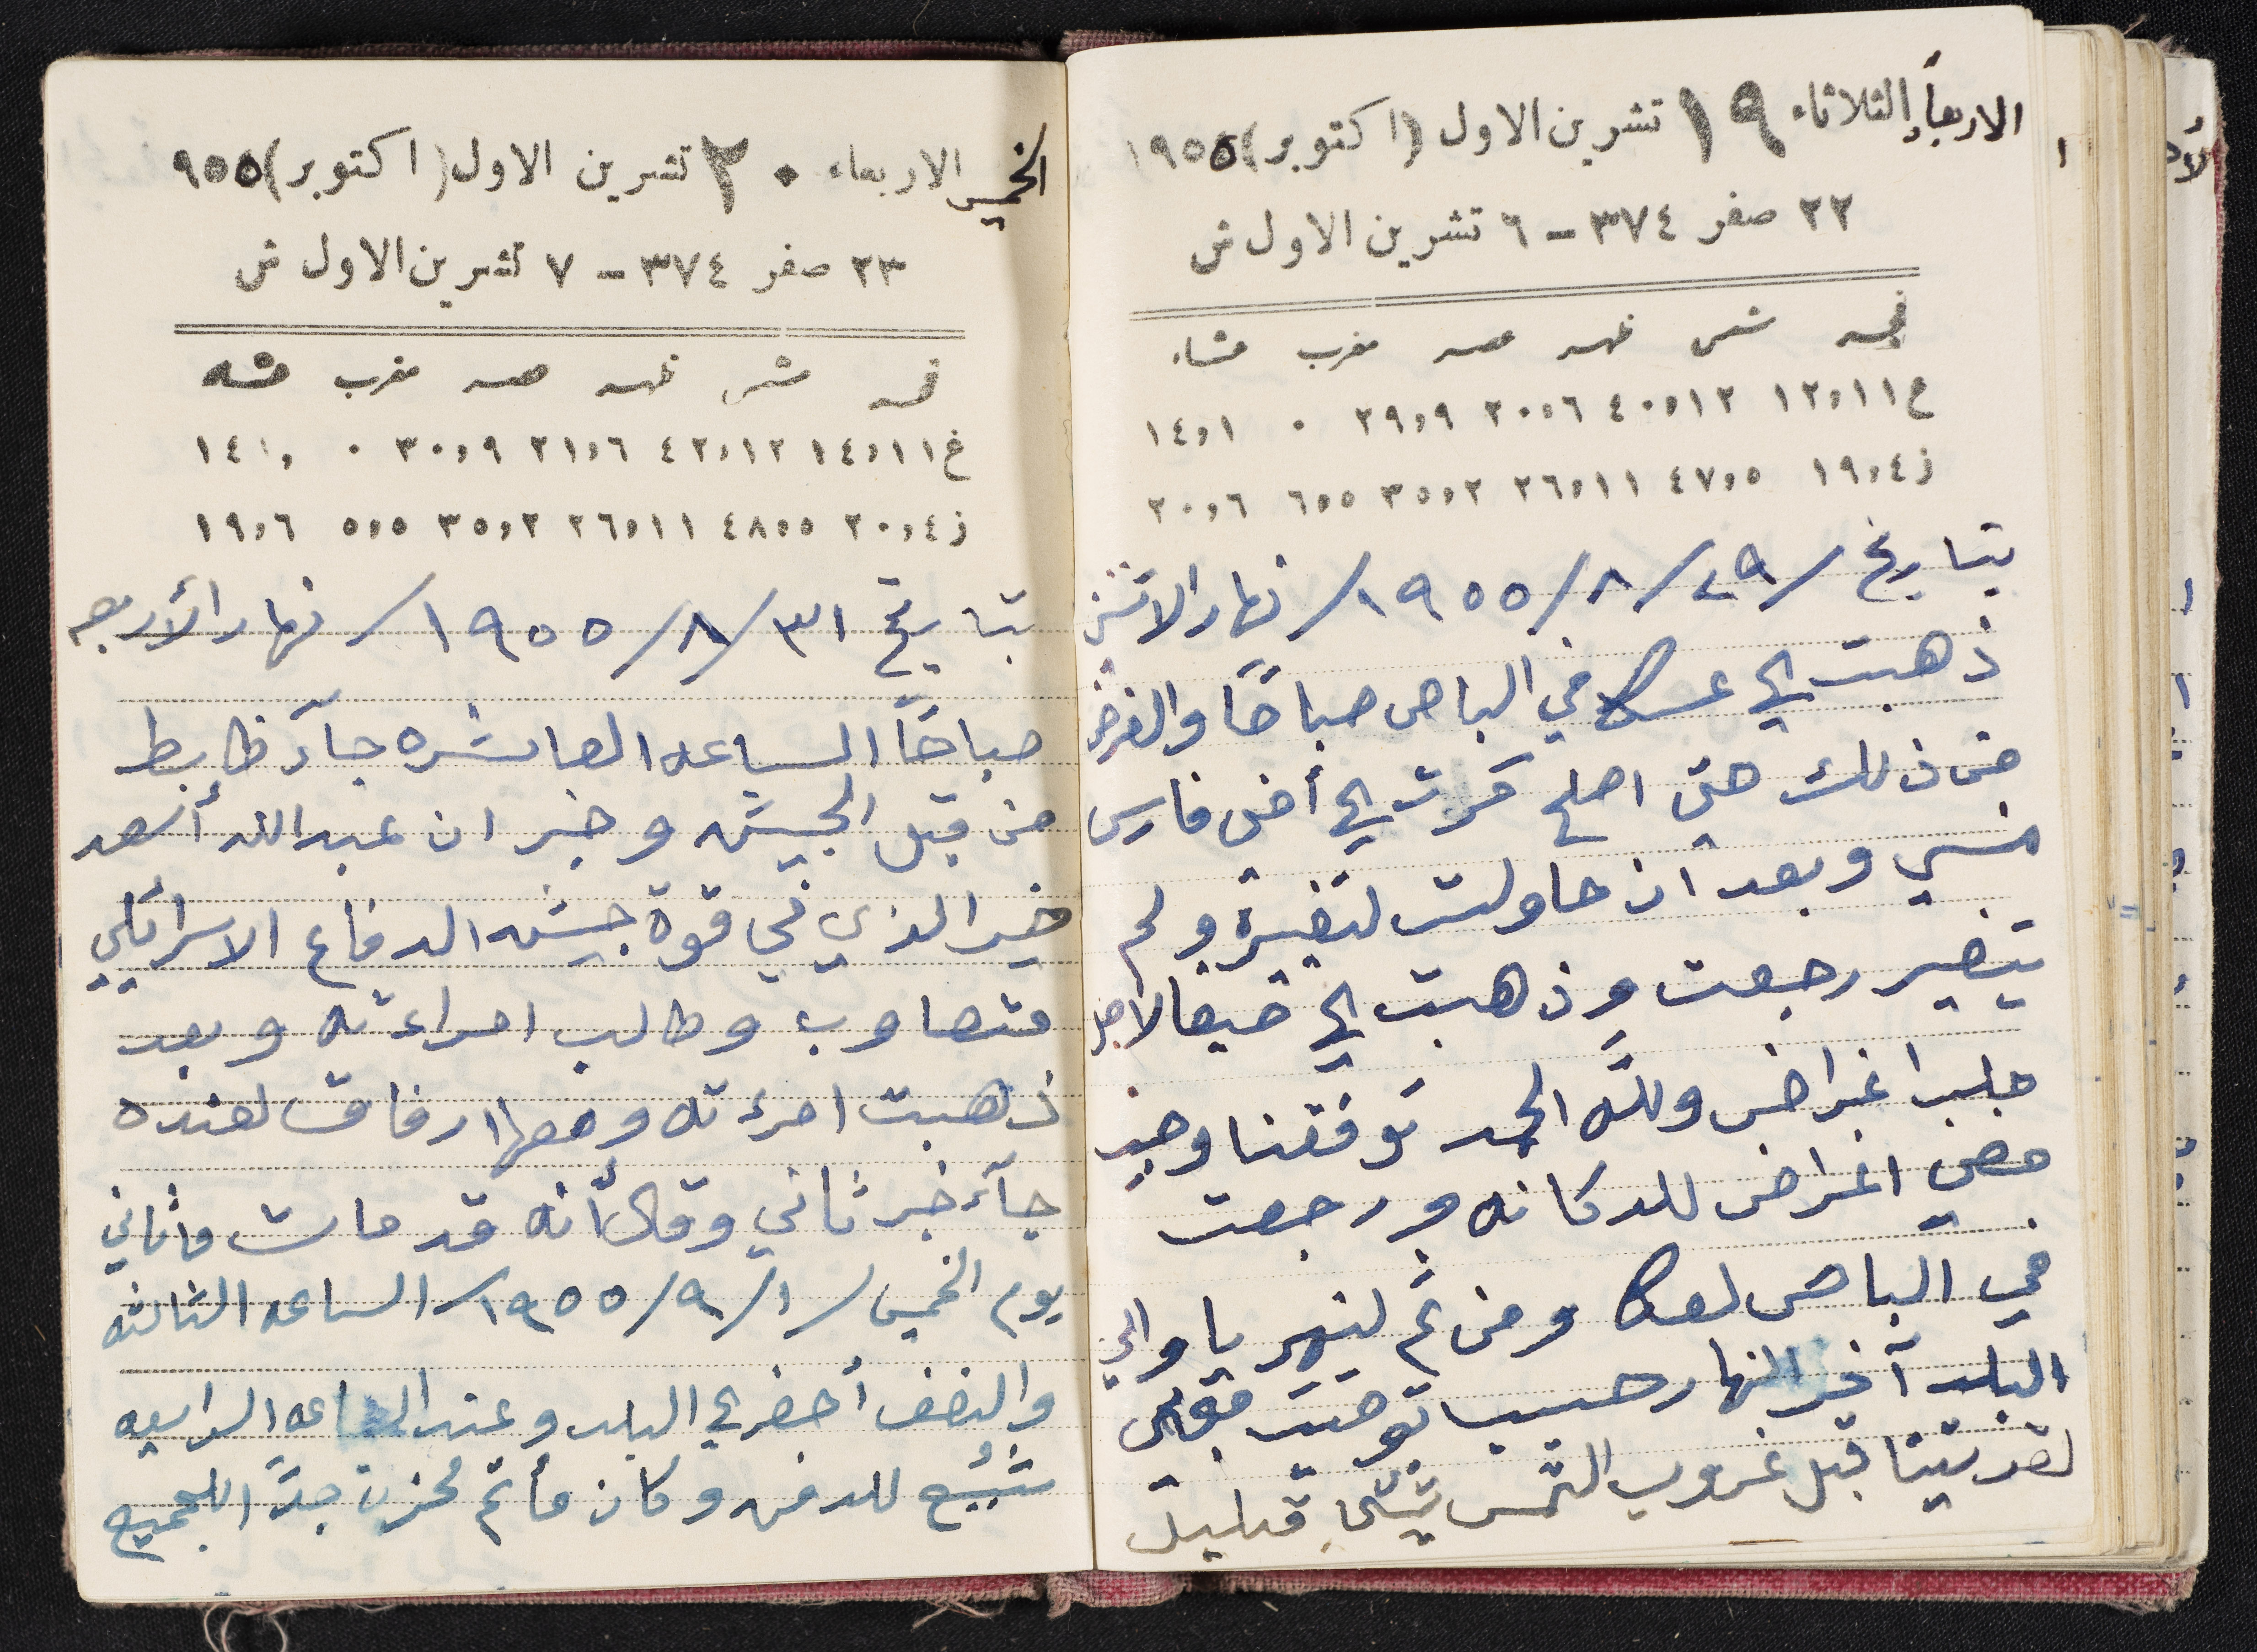 الاربعاء الثلاثاء ١٩ تشرين الاول (اكتوبر) ١٩٥٥
٢٢ صفر ٣٧٤ - ٦ تشرين الاول ش
فجر شمس ظهر عصر مغرب عشاء
غ ١٢,١١ ٤٠,١٢ ٢٠,٦ ٢٩,٩ ٠ ١٤,١
ز ١٩,٤ ٤٧,٥ ٢٦,١١ ٣٥,٢ ٦,٥ ٢٠,٦
بتاريخ /٢٩/٨/١٩٥٥/ نهار الاثنين
ذهبت الى عكا في الباص صباحًا والغرض
من ذلك حتى اصلح كرت الى أخي فارس
منسي وبعد ان حاولت لتغيره ولم
يتغير رجعت وذهبت الى حيفا لاجل
جلب اغراض ولله الحمد توفقنا وجبت
معي اغراض للدكانه ورجعت
في الباص لعكا ومن ثم لنهريا والى
البلد آخر النهار حسب توقيت
قبل غروب الشمس بشيء قليل
الخميس الاربعاء ٢٠ تشرين الاول (اكتوبر) ٩٥٥
٢٣ صفر ٣٧٤ - ٧ تشرين الاول ش
فجر شمس ظهر عصر مغرب عشاء
غ ١٤,١١ ٤٢,١٢ ٢١,٦ ٣٠,٩ ٠ ١٤,١
ز ٢٠,٤ ٤٨,٥ ٢٦,١١ ٣٥,٢ ٥,٥ ١٩,٦
بتاريخ ٣١/٨/١٩٥٥/ نهار الأربعه
صباحًا الساعه العاشره جآء ظابط
من قبل الجيش وخبر ان عبدالله أسعد
خير الذي في قوة جيش الدفاع الاسرائيلي
متصاوب وطالب امراءته وبعد
ذهبت امرءته ومعها رفاق لعنده
جآء خبر ثاني وقال أنه قد مات وثاني
يوم الخميس /١/٩/١٩٥٥/ الساعه الثالثه
والنصف أحضر الى البلد وعند الساعه الرابعه
شيّع للدفن وكان مأتم محزن جدًا للجميع